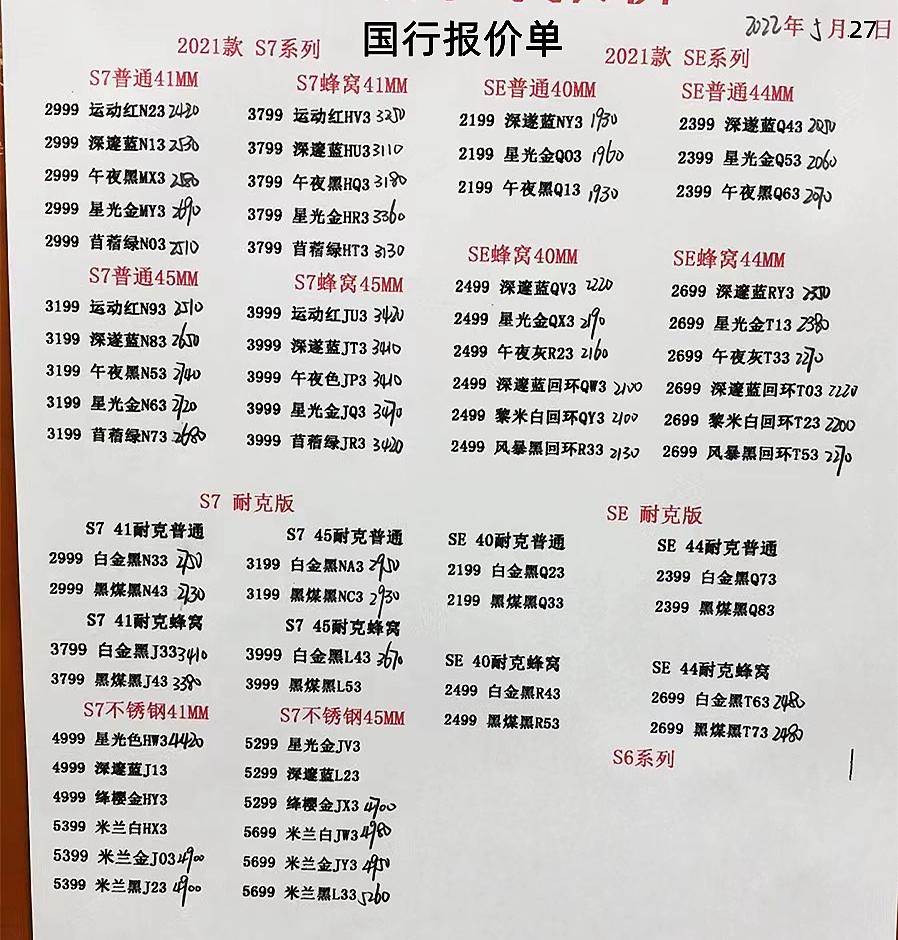 国行报价单
2022年5月27日
2021款 S7系列
S7普通41MM
2999 运动红N23 2420
2999 深邃蓝N13 2530
2999 午夜黑MX3
2999 星光金MY3 2690
2999 苜蓿绿N03 2510
S7普通45MM
3199 运动红N93 2510
3199 深遂蓝N83 2650
3199 午夜黑N53 2740
3199 星光金N63 2720
3199 苜蓿绿N73 2680
S7蜂窝41MM
3799 运动红HV3 3250
3799 深邃蓝HU3 3110
3799 午夜黑HQ3 3180
3799 星光金HR3 3360
3799 苜蓿绿HT3 3130
S7蜂窝45MM
3999 运动红JU3 3420
3999 深邃蓝JT3 3410
3999 午夜色JP3 3410
3999 星光金JQ3 3470
3999 苜蓿绿JR3 3420
2021款 SE系列
SE普通40MM
2199 深邃蓝NY3 1930
2199 星光金Q03 1960
2199 午夜黑Q13 1930
SE蜂窝40MM
2499 深邃蓝QV3 2220
2499 星光金QX3 2190
2499 午夜灰R23 2160
2499 深邃蓝回环QW3 2100
2499 黎米白回环QY3 2100
2499 风暴黑回环R33 2130
SE普通44MM
2399 深邃蓝Q43 2050
2399 星光金Q53 2060
2399 午夜黑Q63 2070
SE蜂窝44MM
2699 深邃蓝RY3
2699 星光金T13 2380
2699 午夜灰T33 2270
2699 深邃蓝回环T03 2220
2699 黎米白回环T23 2200
2699 风暴黑回环T53 2270
S7 耐克版
S7 41耐克普通
2999 白金黑N33 2750
2999 黑煤黑N43 2730
S7 41耐克蜂窝
3799 白金黑J33 3410
3799 黑煤黑J43 3380
S7不锈钢41MM
4999 星光色HW3 4420
4999 深邃蓝J13
4999 绛樱金HY3
5399 米兰白HX3
5399 米兰金J03 4900
5399 米兰黑J23 4900
S7 45耐克普通
3199 白金黑NA3 2950
3199 黑煤黑NC3 2930
S7 45耐克蜂窝
3999 白金黑L43 3670
3999 黑煤黑L53
S7不锈钢45MM
5299 星光金JV3
5299 深邃蓝L23
5299 绛樱金JX3 4700
5699 米兰白JW3 4980
5699 米兰金JY3 4950
5699 米兰黑L33 5260
SE 耐克版
SE 40耐克普通
2199 白金黑Q23
2199 黑煤黑Q33
SE 40耐克蜂窝
2499 白金黑R43
2499 黑煤黑R53
SE 44耐克普通
2399 白金黑Q73
2399 黑煤黑Q83
SE 44耐克蜂窝
2699 白金黑T63 2480
2699 黑煤黑T73 2480
S6系列